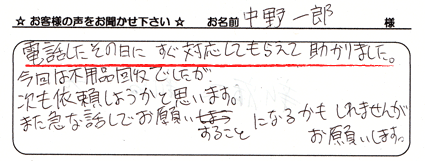 ☆ お客様の声をお聞かせ下さい ☆ お名前 中野一郎 様
電話したその日に すぐ対応してもらえて 助かりました。
今回は不用品回収でしたが、
次も依頼しようかと思います。
また急な話しでお願いすること になるかも しれませんが
お願いします。